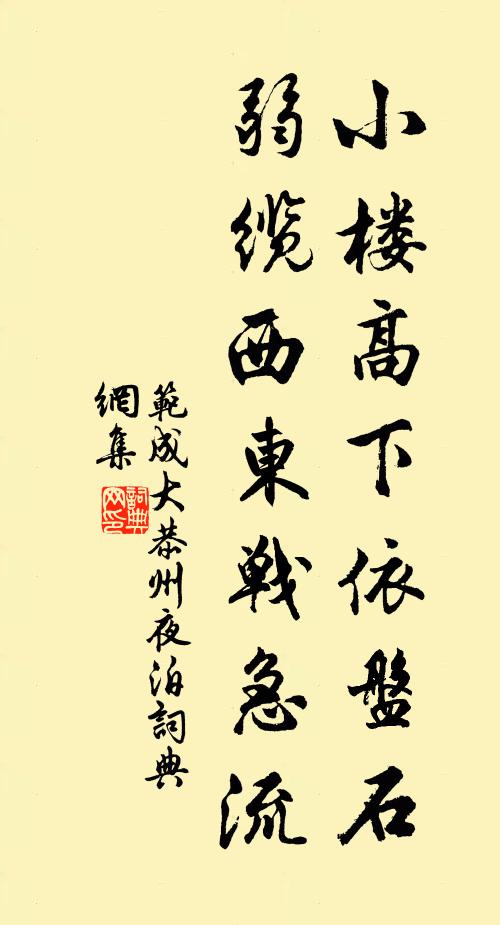 小楼高下依盤石
弱缆西東戦急流
範成大恭州夜泊詞典
網集
詞典网印